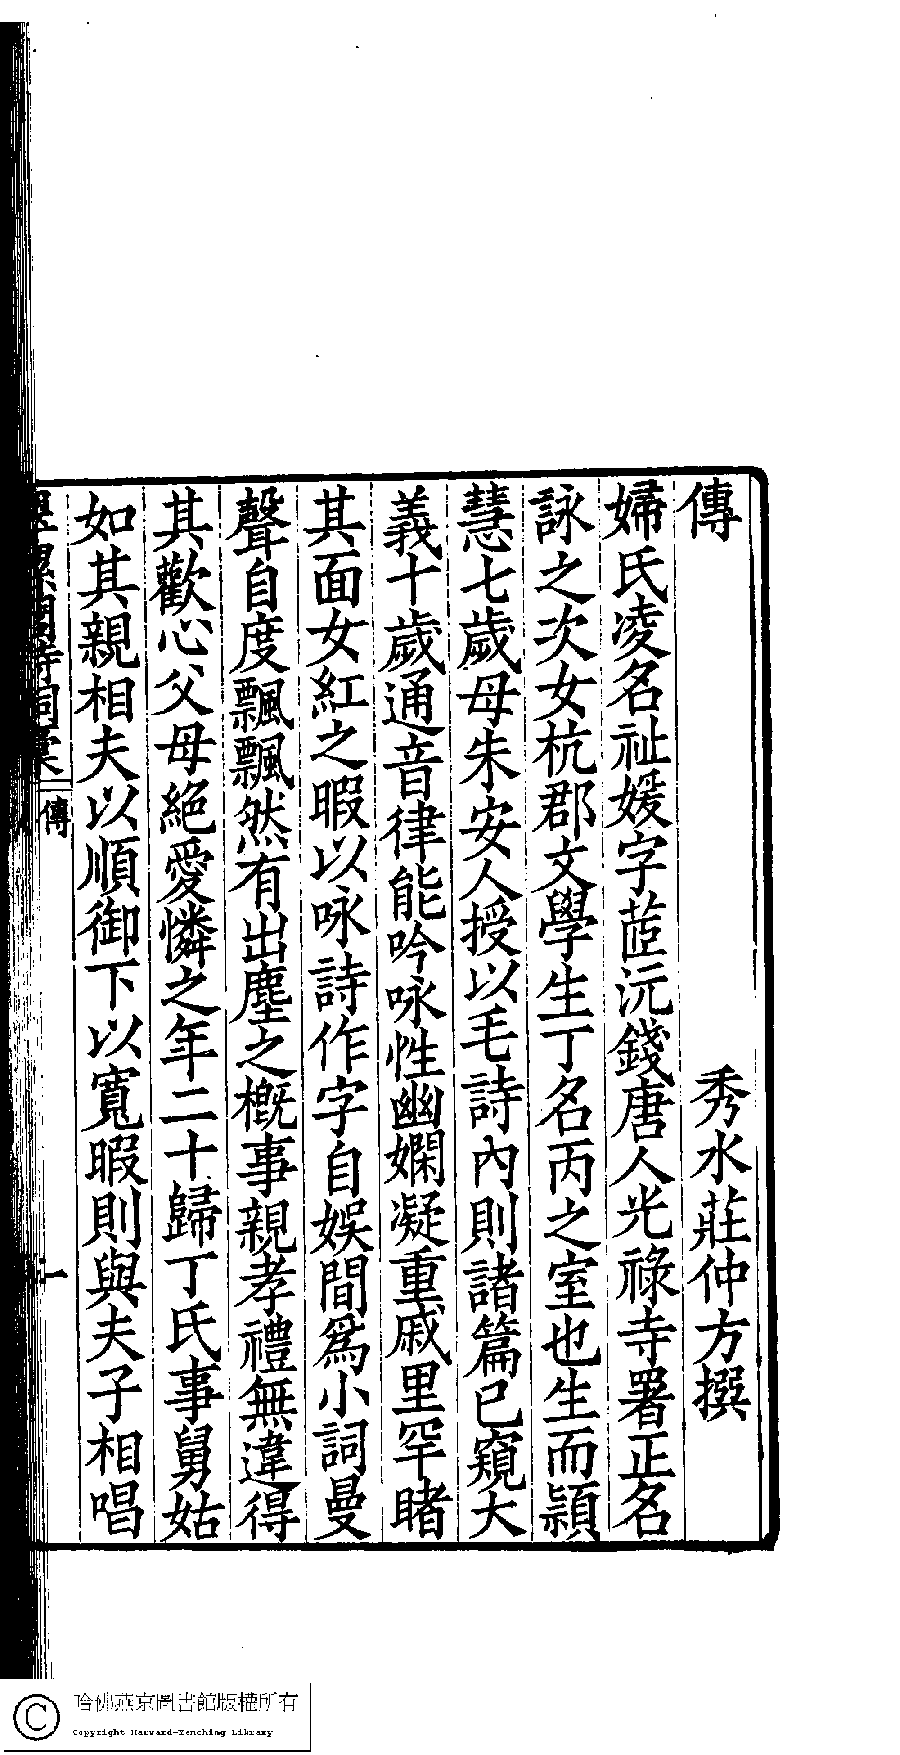 傳
秀水莊仲方撰
婦氏凌名祉媛字茝沅錢唐人光祿寺署正名
詠之次女杭郡文學生丁名丙之室也生而穎
慧七歲母朱安人授以毛詩內則諸篇已窺大
義十歲通音律能吟咏性幽嫻凝重戚里罕睹
其面女紅之暇以咏詩作字自娛間爲小詞曼
聲自度飄飄然有出塵之概事親孝禮無違得
其歡心父母絕愛憐之年二十歸丁氏事舅姑
如其親相夫以順御下以寬暇則與夫子相唱
翠螺閣詩詞稾
傳
一
哈佛燕京圖書館版權所有
Copyright Harvard-Yenching Library